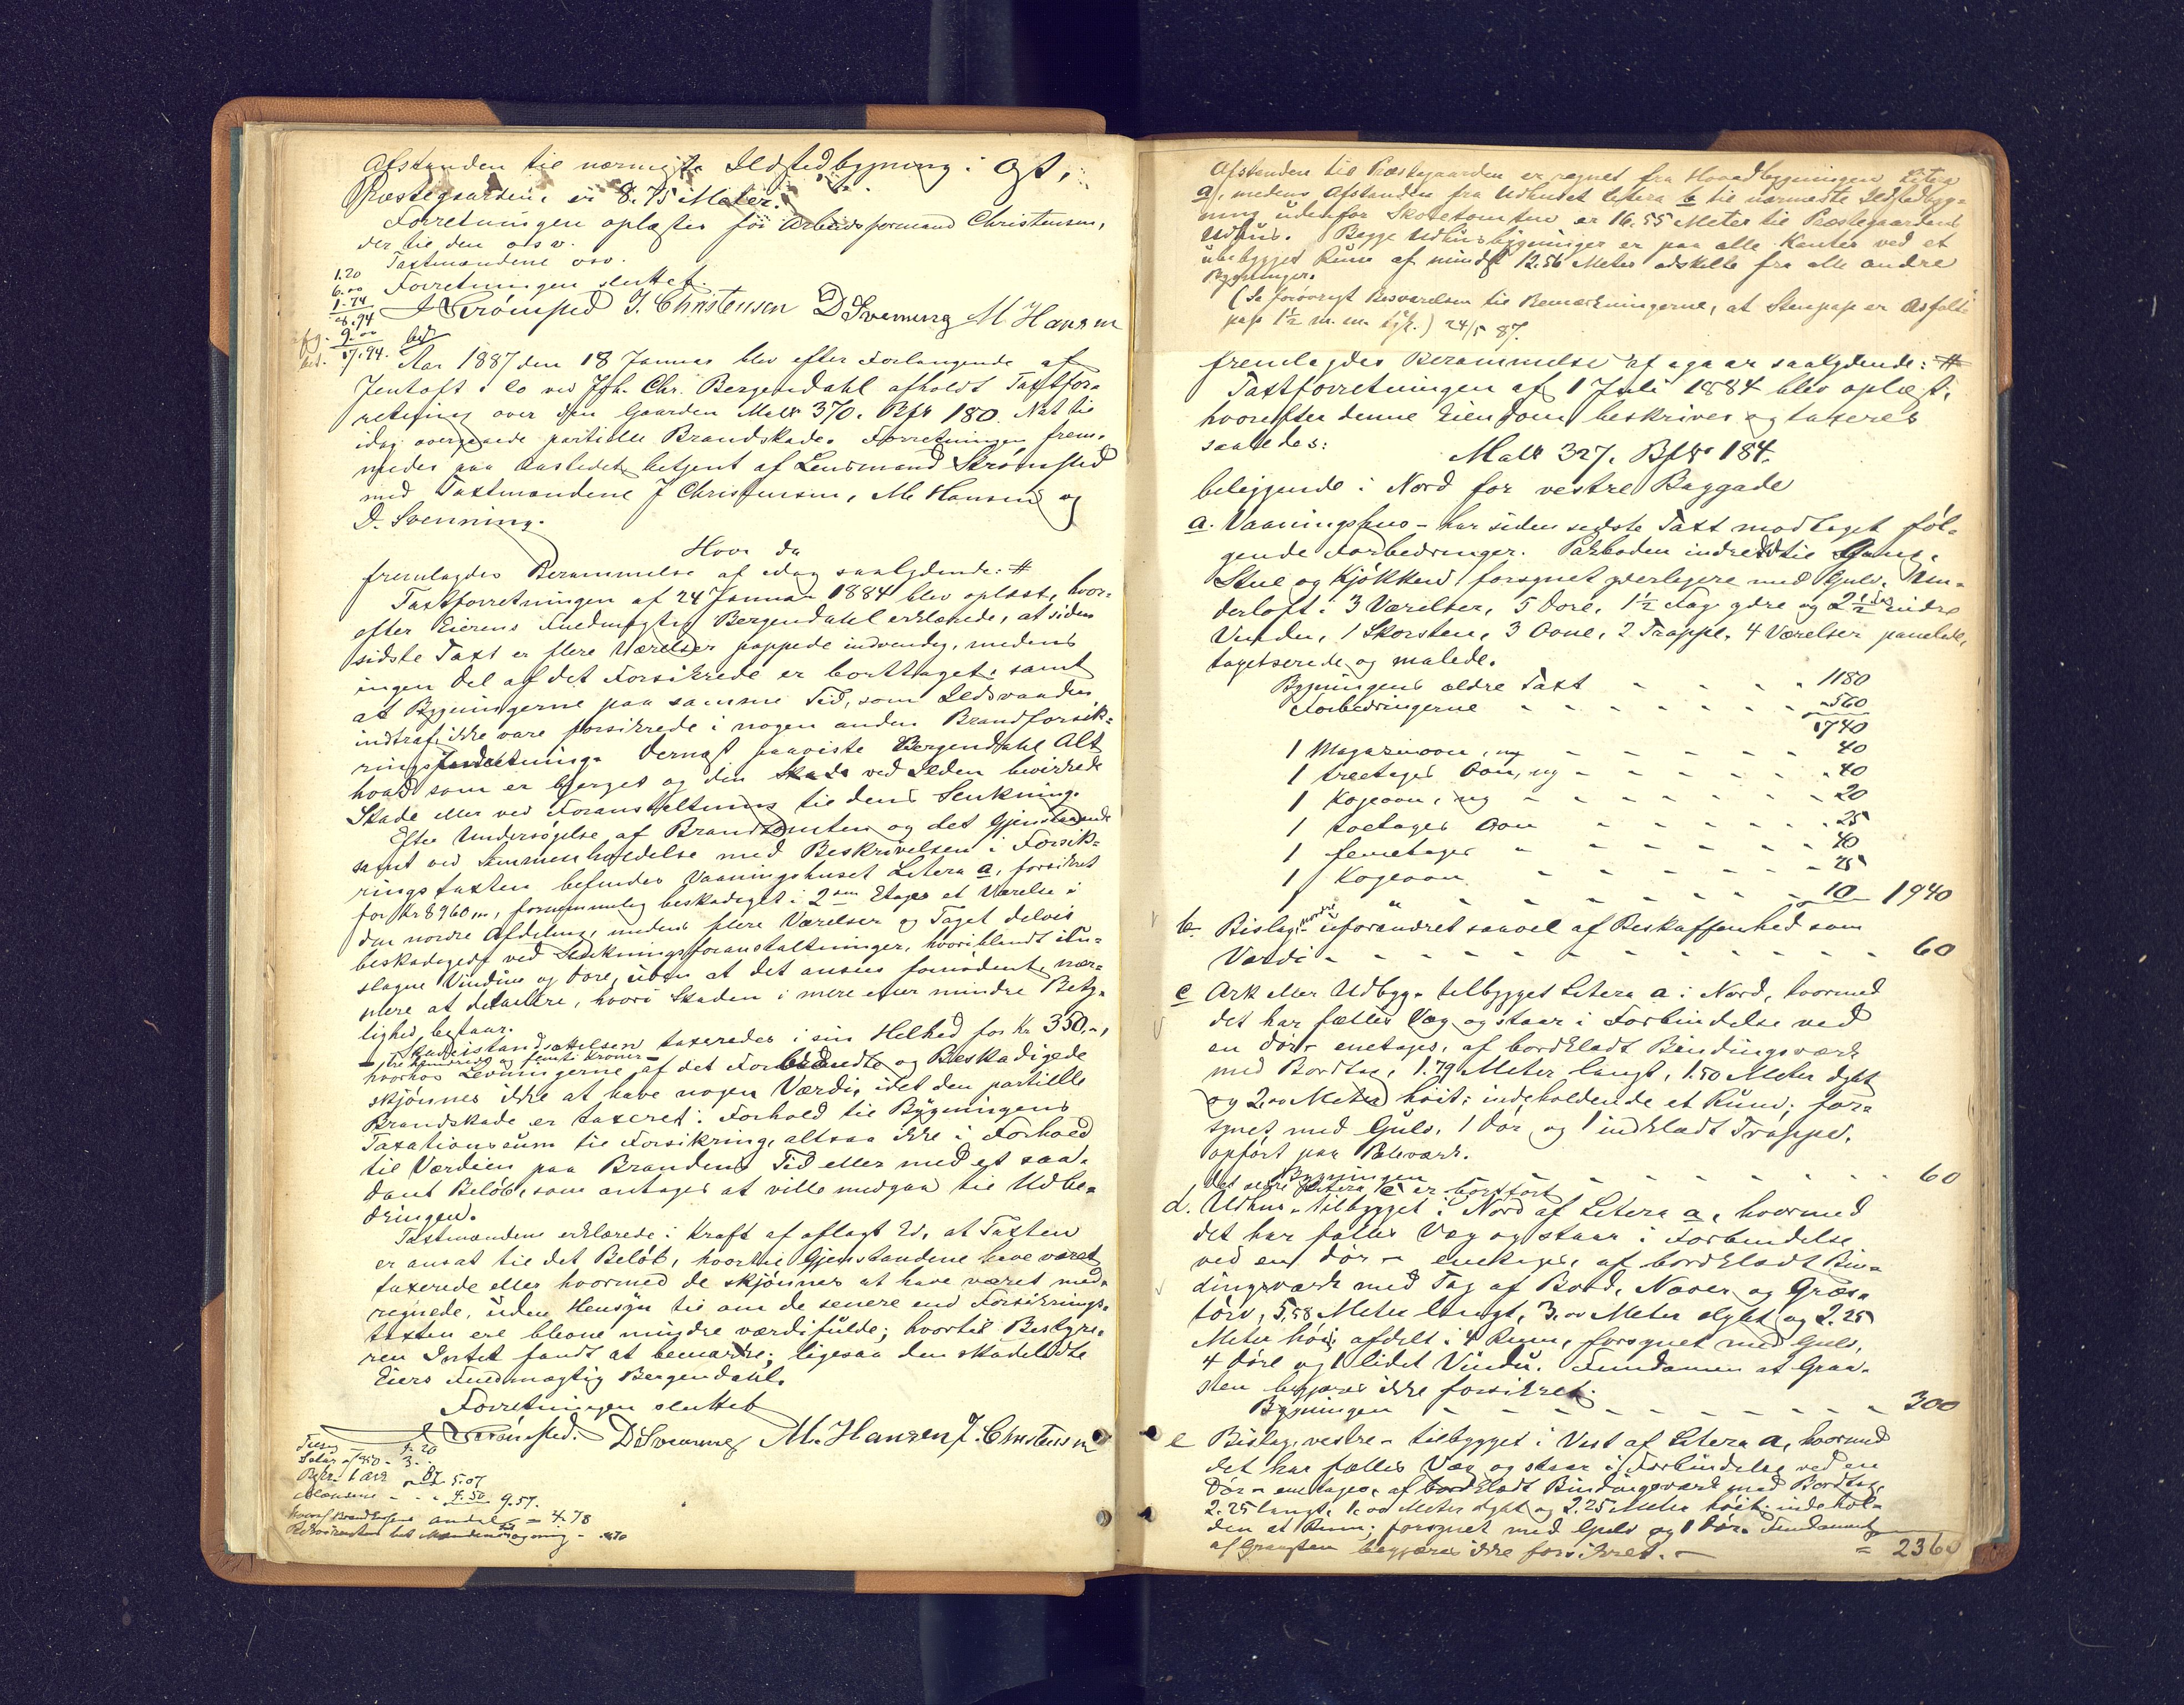 Afstanden til nærmeste Ildstedbygning i Øst,
Præstegaarden, er 8.75 Meter.
Forretningen oplæstes for Arbeidsformand Christensen,
der til den osv.
Taxtmændene osv.
Forretningen sluttet.
1.20
6.00
1.74
8.94
9.00
17.94.
Strømsted J. Christensen D Svenning M. Hansen
Aar 1887 den 18 Januar blev efter Forlangende af
Jentoft & Co ved Joh. Chr. Bergendahl afholdt Taxtfor-
retning over den Gaarden Matr 370. Bfr 180. Nat til
idag overgaaede partielle Brandskade. Forretningen frem-
mødes paa Aastedet betjent af Lensmand Strømsted
med Taxtmændene J Christensen, M. Hansen og
D. Svenning.
Hvor da
fremlagdes Berammelse af idag saalydende: #
Taxtforretningen af 24 Januar 1884 blev oplæst, hvor-
efter Eierens Fuldmægtig Bergendahl erklærede, at siden
sidste Taxt er flere Værelser pappede indvendig, medens
ingen Del af det Forsikrede er borttaget, samt
at Bygningerne paa samme Tid, som Ildsvaaden
indtraf, ikke vare forsikrede i nogen anden Brandforsik-
rings Indretning. Dernæst paaviste Bergendahl Alt
hvad som er bjerget og den Skade ved Ilden bevirkede
Skade eller ved Foranstaltning til dens Slukning.
Efter Undersøgelse af Brandtomten og det Gjenstaaende
samt ved Sammenholdelse med Beskrivelsen i Forsik-
ringstaxten befindes Vaaningshuset Litera a, forsikret
for Kr 8960.00, fornemmelig beskadiget i 2den Etages et Værelse i
den nordre Afdeling, medens flere Værelser og Taget delvis
beskadiget ved Slukningsforanstaltninger, hvoriblandt itu-
slagne Vinduer og Døre, uden at det ansees fornødent nær-
mere at detaliere, hvori Skaden i mere eller mindre Bety-
lighed bestaar.
Skadeistandsættelsen taxeredes i sin Helhed for Kr 350.-,
- tre hundrede og femti Kroner -
hvorhos Levningerne af det Forbrændte og Beskadigede
skjønnes ikke at have nogen Værdi, idet den partielle
Brandskade er taxeret i Forhold til Bygningens
Taxationssum til Forsikring, altsaa ikke i Forhold
til Værdien paa Brandens Tid eller med et saa-
dant Beløb, som antages at ville medgaa til Udbe-
dringen.
Taxtmændene erklærede i Kraft af aflagt Ed, at Taxten
er ansat til det Beløb, hvortil Gjenstandene have været
taxerede eller hvormed de skjønnes at have været med-
regnede, uden Hensyn til om de senere end Forsikrings-
taxten ere blevne mindre værdifulde; hvortil Bestyre-
ren Intet fandt at bemærke; ligesaa den skadelidte
Eiers Fuldmægtig Bergendahl.
Forretningen sluttet
Strømsted. D Svenning M. Hansen J. Christensen
1.20
5.07
4.50 9.57.
andel = 4.78
Afstanden til Præstegaarden er regnet fra Hovedbygningen Litera
a, medens Afstanden fra Udhuset Litera b til nærmeste Ildstedbyg-
ning udenfor Skoletomten er 16.55 Meter til Præstegaardens
Udhus. Begge Udhusbygninger er paa alle Kanter ved et
ubebygget Rum af mindst 12.56 Meter adskilte fra alle andre
Bygninger.
(Se forøvrigt Besvarelsen til Bemærkningerne, at Stenpap er Asfalt-
pap 1½ m.m. tyk.) 24/5 87.
fremlagdes Berammelse af saalydende: #
Taxtforretningen af 1 Juli 1884 blev oplæst,
hvorefter denne Eiendom beskrives og taxeres
saaledes:
Matr 327. Bfr 184.
beliggende i Nord for vestre Baggade
a. Vaaningshus - har siden sidste Taxt modtaget føl-
gende Forbedringer. Pakboden indredet til Gang,
Stue og Kjøkken, forsynet yderligere med Gulv, Un-
derloft i 3 Værelser, 5 Døre, 1½ Fag ydre og 2½ Fag indre
Vinduer, 1 Skorsten, 3 Ovne, 2 Trapper, 4 Værelser panelede,
tapetserede og malede.
Bygningens ældre Taxt - - - 1180
Forbedringerne - - - 560
1740
1 Magasinovn, ny - - - 40
1 træetages Ovn, ny - - - 40
1 Kogeovn, ny - - - 20
1 toetages Ovn - - - 25
1 femetages " - - - 40
1 Kogeovn - - - 25
1 " - - - 10 1940
b. Bislag, nordre - uforandret saavel af Beskaffenhed som
Værdi - - - 60
c Ark eller Udbyg - tilbygget Litera a i Nord, hvormed
det har fælles Væg og staar i Forbindelse ved
en Dør - enetages, af bordklædt Bindingsværk
med Bordtag, 1.79 Meter langt, 1.50 Meter dybt
og 2.00 Meter høit; indeholdende et Rum; for-
synet med Gulv, 1 Dør og 1 indklædt Trappe,
opført paa Pæleværk.
Bygningen - - - 60
Det ældre Litera c er bortført
d. Udhus - tilbygget i Nord af Litera a, hvormed
det har fælles Væg og staar i Forbindelse
ved en Dør - enetages, af bordklædt Bin-
dingsværk med Tag af Bord, Næver og Græs-
tørv, 5.58 Meter langt, 3.00 Meter dybt og 2.25
Meter høit, afdelt i 4 Rum, forsynet med Gulv,
4 Døre og 1 lidet Vindu. Fundament af Graa-
sten begjæres ikke forsikret.
Bygningen - - - 300
e Bislag, vestre - tilbygget i Vest af Litera a, hvormed
det har fælles Væg og staar i Forbindelse ved en
Dør - enetages, af bordklædt Bindingsværk med Bordtag,
2.25 langt, 1.00 Meter dybt og 2.25 Meter høit; indehol-
den et Rum; forsynet med Gulv og 1 Dør. Fundament
af Graasten begjæres ikke forsikret. - = 2360